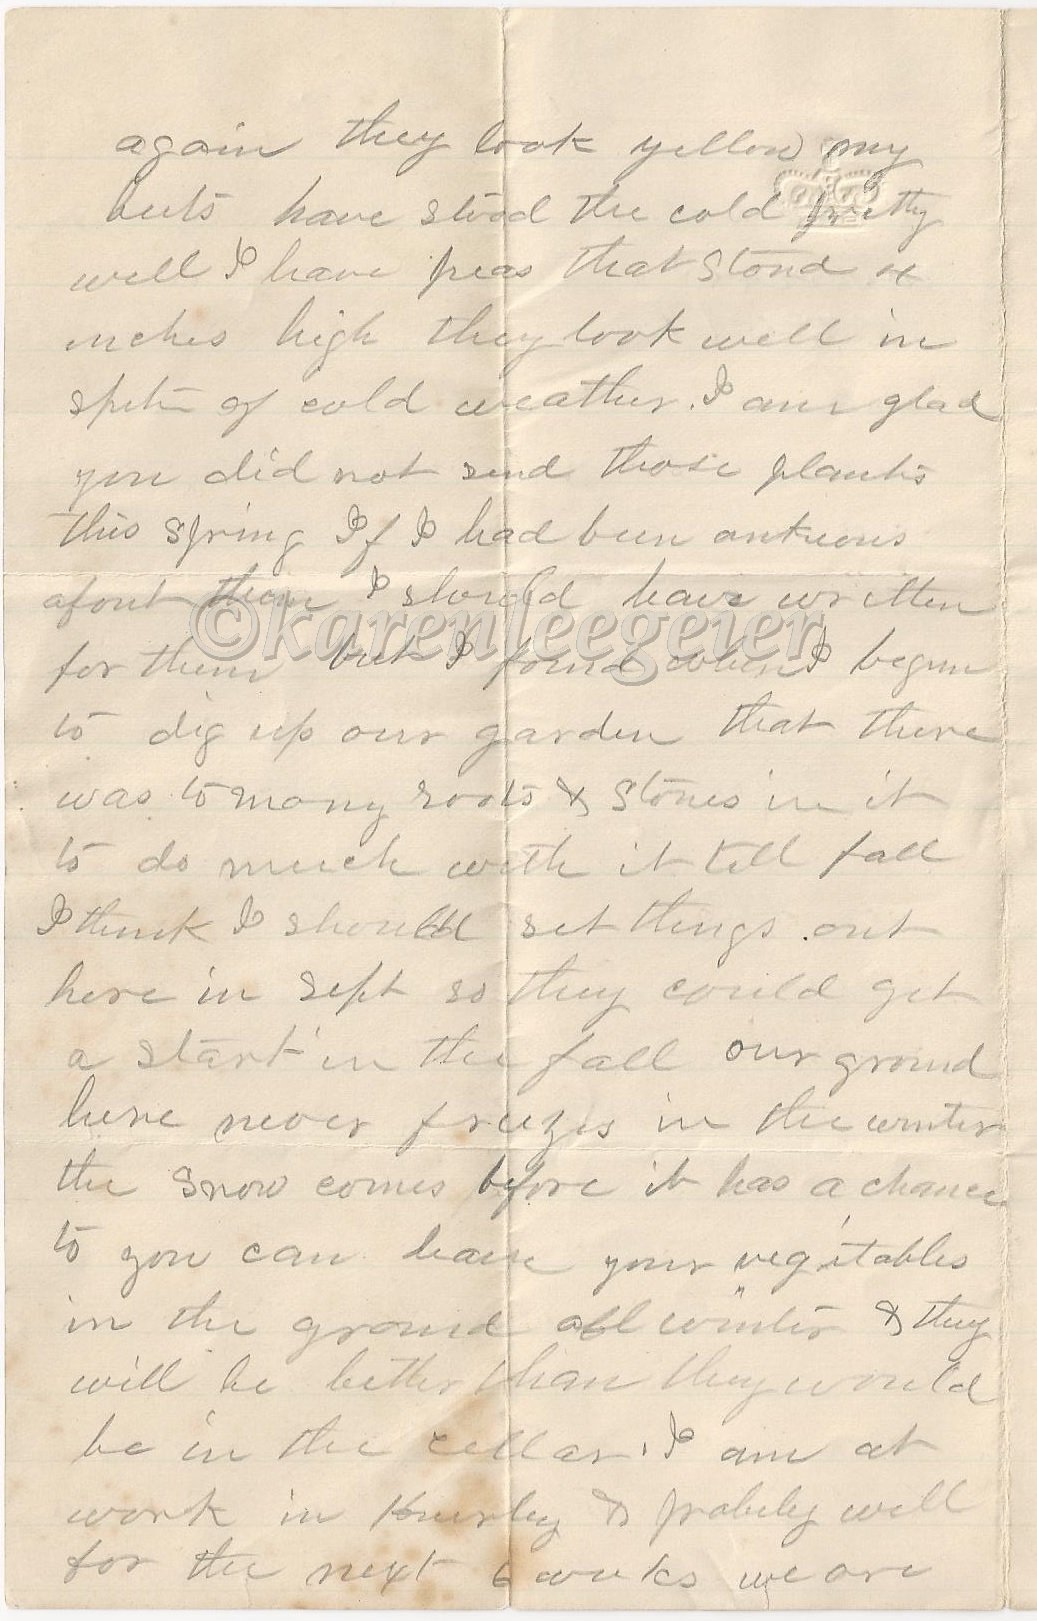 again they look yellow my
beets have stood the cold pretty
well I have peas that stand
inches high they look well in
spite of cold weather. I am glad
you did not send those plants
this spring If I had been anxious
about them I should have written
for them but I found when I begun
to dig up our garden that there
was to many roots & stones in it
to do much with it till fall
I think I should set things out
here in Sept so they could get
a start in the fall our ground
here never freezes in the winter
the snow comes before it has a chance
to you can leave your vegitables
in the ground all winter & they
will be better than they would
be in the cellar. I am at
work in & probely will
for the next 6 weeks we are
©karenleegeier